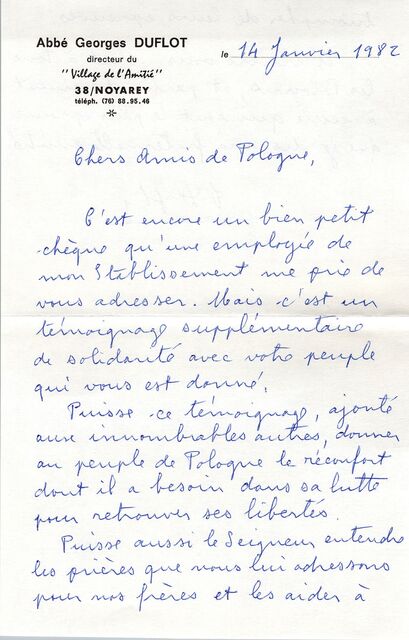 Abbé Georges DUFLOT
directeur du
"Village de l'Amitié"
38/NOYAREY
téléph. (76) 88.95.46
le 14 Janvier 1982
Chers Amis de Pologne,
C'est encore un bien petit
chèque qu'une employée de
mon Etablissement me prie de
vous adresser. Mais c'est un
témoignage supplémentaire
de solidarité avec votre peuple
qui vous est donné.
Puisse ce témoignage, ajouté
aux innombrables autres, donner
au peuple de Pologne le réconfort
dont il a besoin dans sa lutte
pour retrouver ses libertés.
Puisse aussi le Seigneur entendre
les prières que nous lui adressons
pour nos frères et les aider à